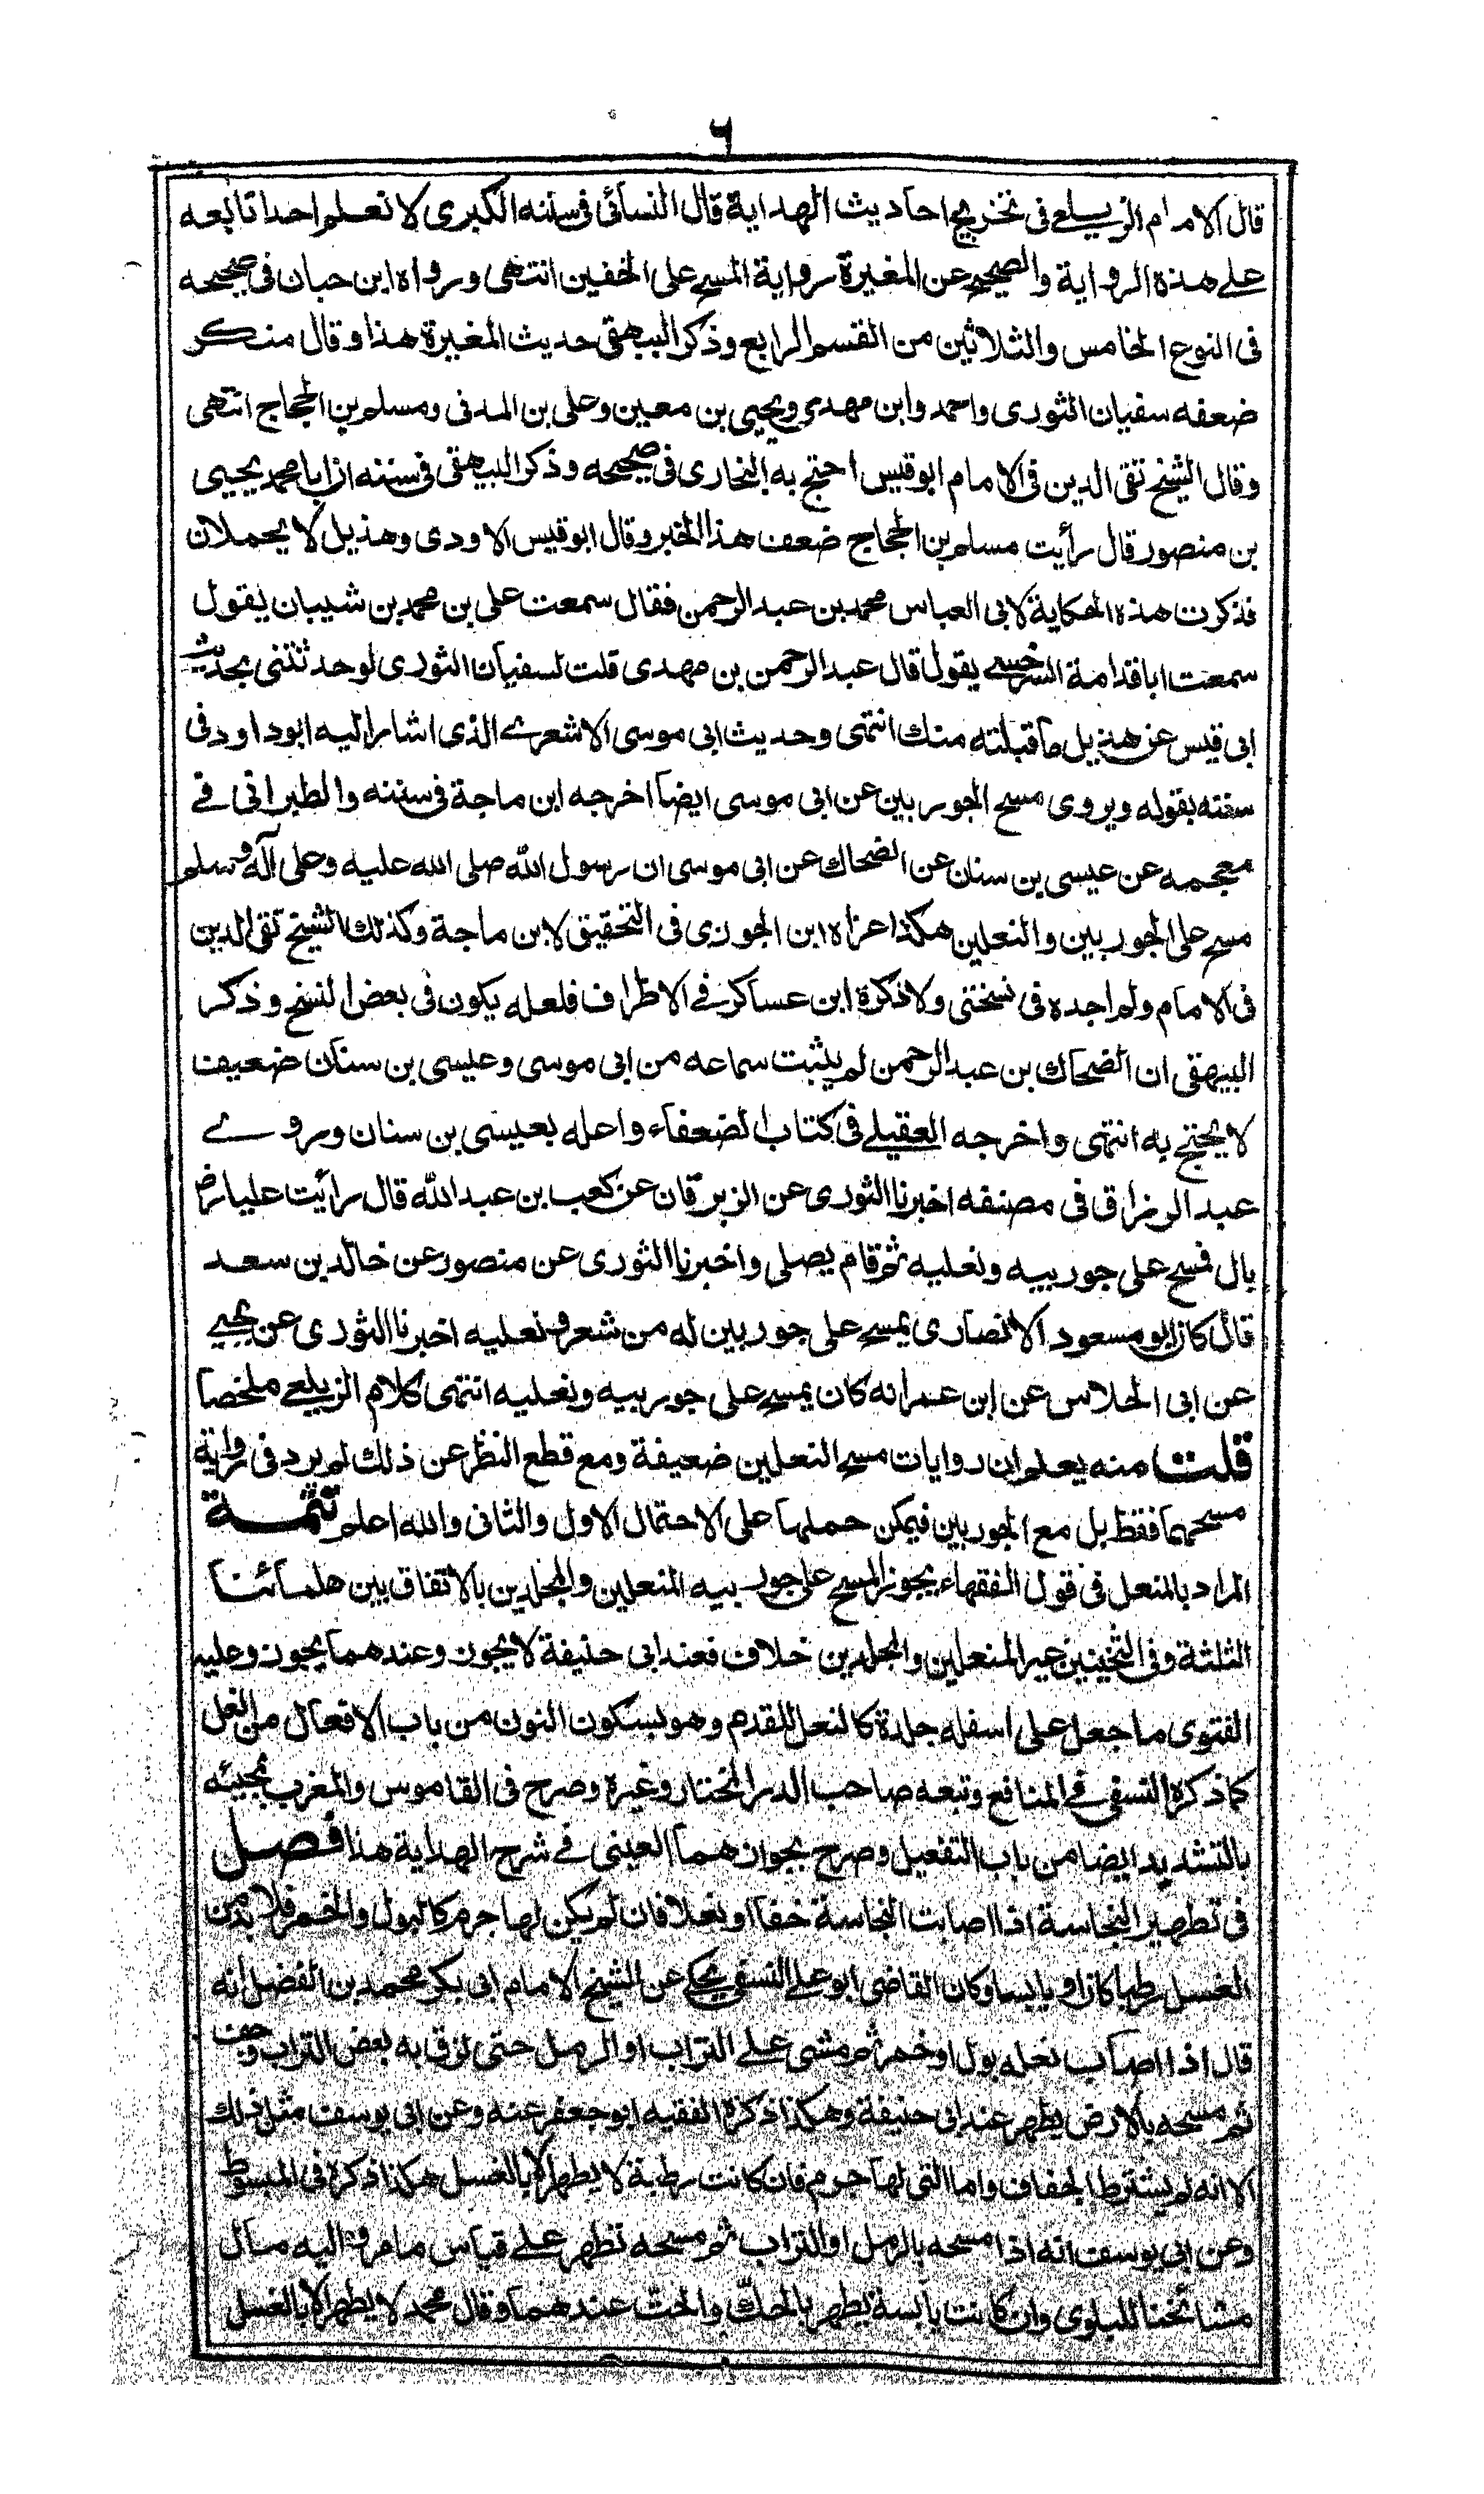 ٦
قال الامام الزيلعي فى تخريج احاديث الهداية قال النسائى فى سننه الكبرى لا نعلم احدا تابعه
على هذه الرواية والصحيح عن المغيرة رواية المسح على الخفين انتهى ورواه ابن حبان فى صحيحه
فى النوع الخامس والثلاثين من القسم الرابع وذكر البيهقى حديث المغيرة هذا وقال منكر
ضعفه سفيان الثورى واحمد وابن مهدى ويحيى بن معين وعلى بن المدنى ومسلم بن الحجاج انتهى
وقال الشيخ تقى الدين فى الامام ابو قيس احتج به البخارى فى صحيحه وذكر البيهقى فى سننه ان ابا محمد يحيى
بن منصور قال رأيت مسلم بن الحجاج ضعف هذا الخبر وقال ابو قيس الاودى وهذيل لا يحملان
فذكرت هذه الحكاية لابى العباس محمد بن عبد الرحمن فقال سمعت على بن محمد بن شيبان يقول
سمعت ابا قدامة السرخسى يقول قال عبد الرحمن بن مهدى قلت لسفيان الثورى لو حدثتنى بحديث
ابى قيس عن هذيل ما قبلته منك انتهى وحديث ابى موسى الاشعرى الذى اشار اليه ابو داود فى
سننه بقوله ويروى مسح الجوربين عن ابى موسى ايضا اخرجه ابن ماجة فى سننه والطبرانى فى
معجمه عن عيسى بن سنان عن الضحاك عن ابى موسى ان رسول الله صلى الله عليه وعلى آله وسلم
مسح على الجوربين والنعلين هكذا عزاه ابن الجوزى فى التحقيق لابن ماجة وكذلك الشيخ تقى الدين
فى الامام ولم اجده فى نسختى ولا ذكرة ابن عساكر فى الاطراف فلعله يكون فى بعض النسخ وذكر
البيهقى ان الضحاك بن عبد الرحمن لم يثبت سماعه من ابى موسى وعيسى بن سنان ضعيف
لا يحتج به انتهى واخرجه العقيلى فى كتاب الضعفاء واعله بعيسى بن سنان وروى
عبد الرزاق فى مصنفه اخبرنا الثورى عن الزبرقان عن كعب بن عبد الله قال رأيت عليا رض
بال فمسح على جوربيه ونعليه ثم قام يصلى واخبرنا الثورى عن منصور عن خالد بن سعد
قال كان ابو مسعود الانصارى يمسح على جوربين له من شعر ونعليه اخبرنا الثورى عن يحيى
عن ابى الحلاس عن ابن عمر انه كان يمسح على جوربيه ونعليه انتهى كلام الزيلعى ملخصا
قلت منه يعلم ان روايات مسح النعلين ضعيفة ومع قطع النظر عن ذلك لم يرد فى رواية
مسحهما فقط بل مع الجوربين فيمكن حملها على الاحتمال الاول والثانى والله اعلم تتمة
المراد بالمنعل فى قول الفقهاء يجوز المسح على جوربيه المنعلين والمجلدين بالاتفاق بين علمائنا
الثلثة وفى الثخينين غير المنعلين والمجلدين خلاف فعند ابى حنيفة لا يجوز وعندهما يجوز وعليه
الفتوى ما جعل على اسفله جلدة كالنعل للقدم وهو بسكون النون من باب الافعال من النعل
كما ذكرة النسفى فى المنافع وتبعه صاحب الدر المختار وغيرة وصرح فى القاموس والمغرب بمجيئه
بالتشديد ايضا من باب التفعيل وصرح بجوازهما العينى فى شرح الهداية هذا فصل
فى تطهير النجاسة اذا اصابت النجاسة خفا او نعلا فان لم يكن لها جرم كالبول والخمر فلا بد من
الغسل رطبا كان او يابسا وكان القاضى ابو على النسفى يحكى عن الشيخ الامام ابى بكر محمد بن الفضل انه
قال اذا اصاب نعله بول او خمر ثم مشى على التراب او الرمل حتى لزق به بعض التراب وجف
ثم مسحه بالارض يطهر عند ابى حنيفة وهكذا ذكرة الفقيه ابو جعفر عنه وعن ابى يوسف مثل ذلك
الا انه لم يشترط الجفاف واما التى لها جرم فان كانت رطبة لا يطهر الا بالغسل هكذا ذكرة فى المبسوط
وعن ابى يوسف انه اذا مسحه بالرمل او التراب ثم مسحه تطهر على قياس ما مر واليه مال
مشائخنا للبلوى وان كانت يابسة يطهر بالحك والحت عندهما وقال محمد لا يطهر الا بالغسل